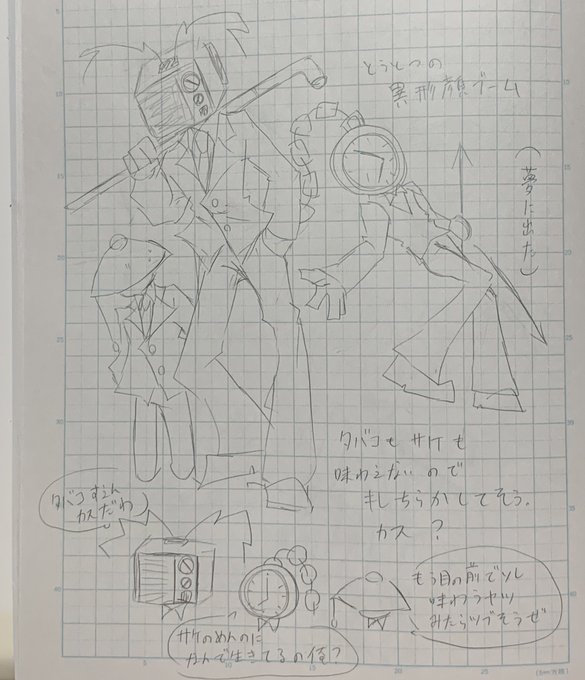 とうとつの
異形顔ブーム
(夢に出た)
タバコも サケも
味わえないので
キレちらかしてそう。
カス?
タバコすえん
カスだわ
サケのめんのに
なんで生きてるの俺?
もう目の前でソレ
味わうヤツ
みたらツブそうぜ